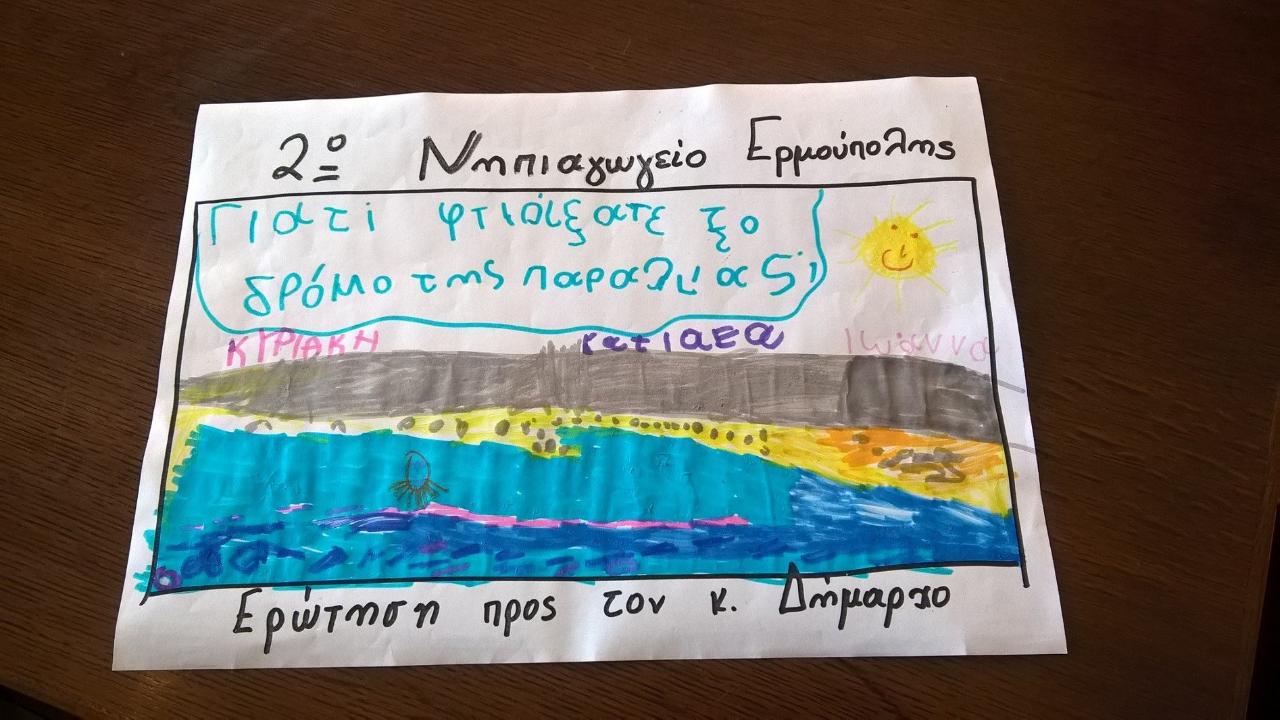 2º Νηπιαγωγείο Ερμούπολης
Γιατί φτιάξατε ξο
δρόμο της παραλίας;
ΚΥΡΙΑΚΗ κατιαεα Ιωάννα
Ερώτηση προς τον κ. Δήμαρχο